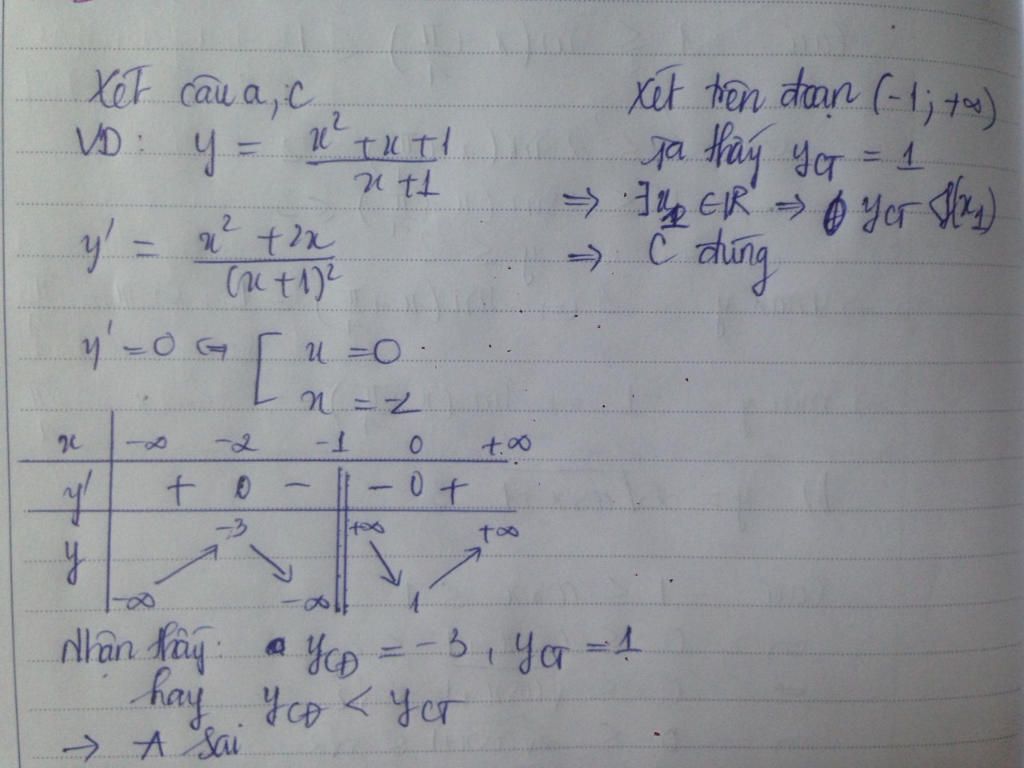 Xét câu a, c
VD: y = (x² + x + 1)/(x + 1)
y' = (x² + 2x)/(x + 1)²
y' = 0 ⇔ [ x = 0
x = -2
x | -∞ -2 -1 0 +∞
y' | + 0 - || - 0 +
y | -∞ ↗ -3 ↘ -∞ || +∞ ↘ 1 ↗ +∞
Nhận thấy: y_CĐ = -3, y_CT = 1
hay y_CĐ < y_CT
→ A sai
Xét trên đoạn (-1; +∞)
Ta thấy y_CT = 1
⇒ ∃x₁ ∈ ℝ ⇒ y_CT < f(x₁)
⇒ C đúng